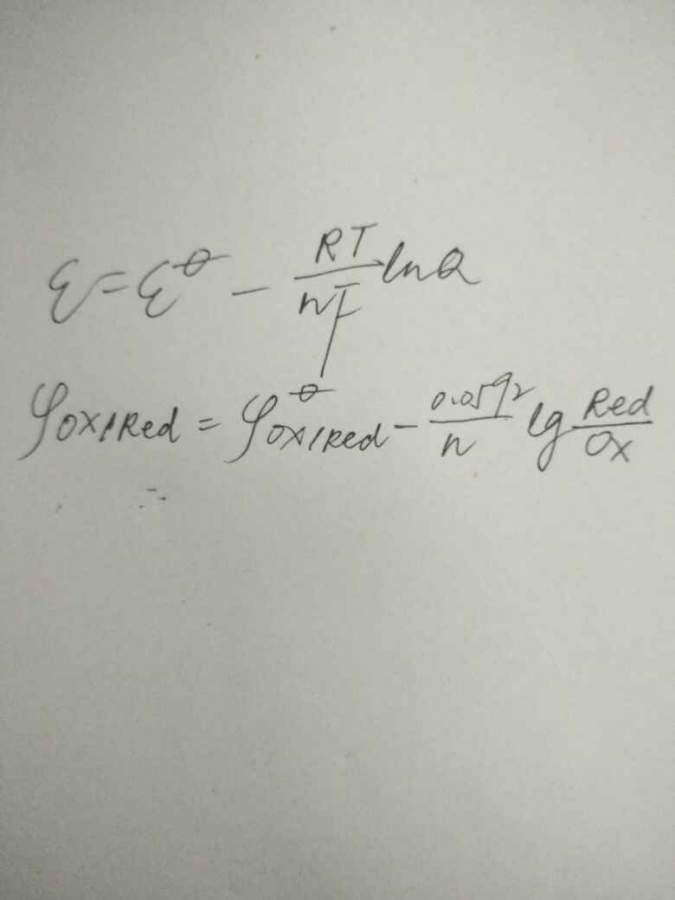 ε = ε^θ − RT/nF ln Q
φ ox/Red = φ^θ ox/Red − 0.0592/n lg Red/Ox